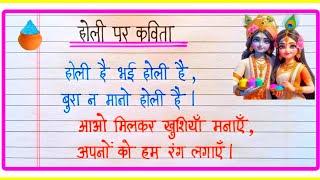 होली पर कविता
होली है भई होली है ,
बुरा न मानो होली है ।
आओ मिलकर खुशियाँ मनाएँ ,
अपनों को हम रंग लगाएँ ।